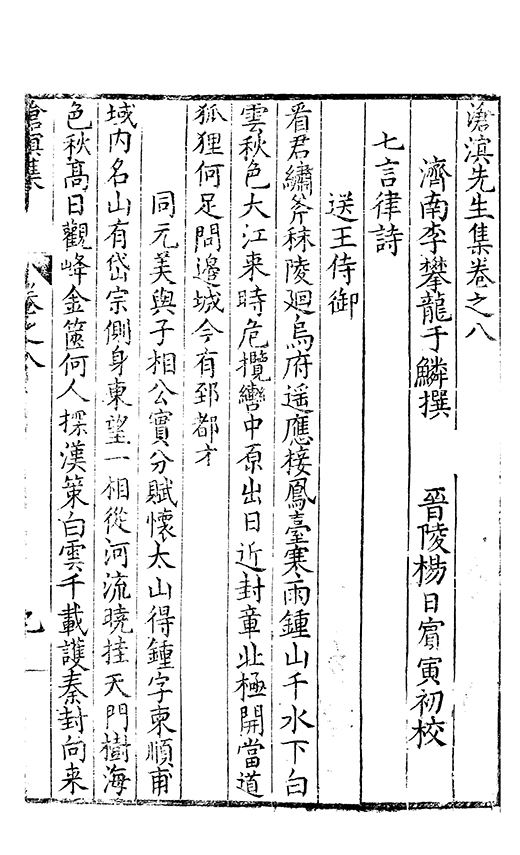 滄溟先生集卷之八
濟南李攀龍于鱗撰　晉陵楊日賔寅初校
七言律詩
送王侍御
看君繡斧秣陵廻烏府遥應接鳳臺寒雨鍾山千水下白
雲秋色大江来時危攬轡中原出日近封章北極開當道
狐狸何足問邉城今有郅都才
同元美與子相公實分賦懷太山得鍾字柬順甫
域内名山有岱宗側身東望一相從河流曉挂天門樹海
色秋髙日觀峰金篋何人探漢策白雲千載護秦封向来
滄溟集
卷之八